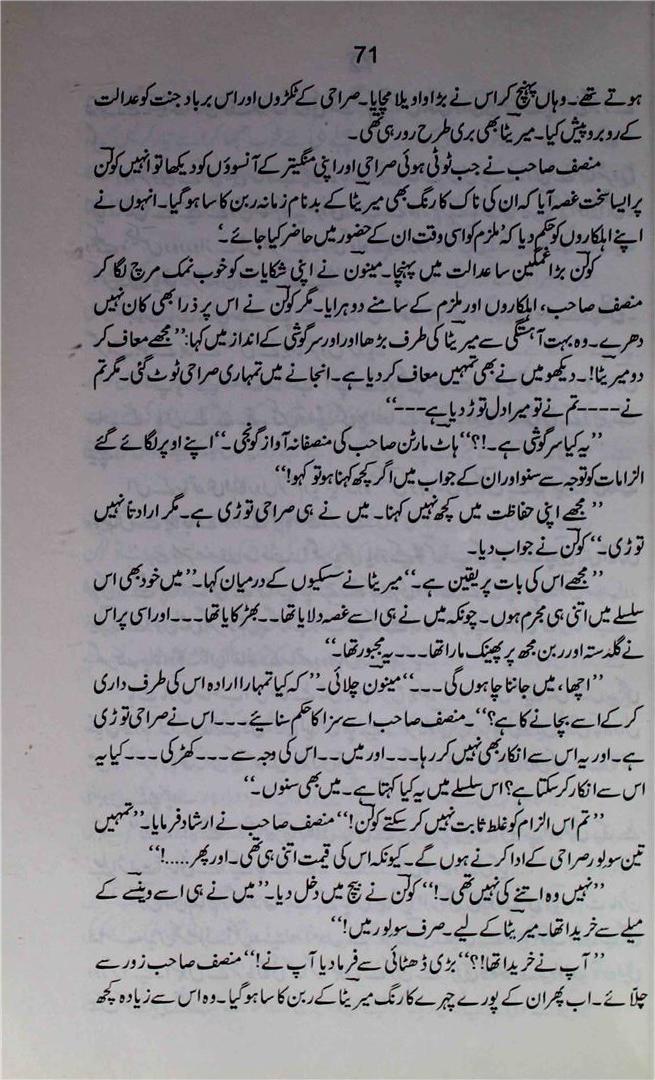 71
ہوتے تھے۔ وہاں پہنچ کر اس نے بڑا واویلا مچایا۔ صراحی کے ٹکڑوں اور اس برباد جنت کو عدالت
کے روبرو پیش کیا۔ میریٹا بھی بری طرح رو رہی تھی۔
منصف صاحب نے جب ٹوٹی ہوئی صراحی اور اپنی منگیتر کے آنسوؤں کو دیکھا تو انہیں کولن
پر ایسا سخت غصہ آیا کہ ان کی ناک کا رنگ بھی میریٹا کے بدنام زمانہ ربن کا سا ہو گیا۔ انہوں نے
اپنے اہلکاروں کو حکم دیا کہ ’ملزم کو اسی وقت ان کے حضور میں حاضر کیا جائے۔‘
کولن بڑا غمگین سا عدالت میں پہنچا۔ مینون نے اپنی شکایات کو خوب نمک مرچ لگا کر
منصف صاحب، اہلکاروں اور ملزم کے سامنے دوہرایا۔ مگر کولن نے اس پر ذرا بھی کان نہیں
دھرے۔ وہ بہت آہستگی سے میریٹا کی طرف بڑھا اور اور سرگوشی کے انداز میں کہا: ”مجھے معاف کر
دو میریٹا!۔ دیکھو میں نے بھی تمہیں معاف کر دیا ہے۔ انجانے میں تمہاری صراحی ٹوٹ گئی۔ مگر تم
نے۔۔۔۔ تم نے تو میرا دل توڑ دیا ہے۔۔۔“
”یہ کیا سرگوشی ہے۔!؟“ ہاٹ مارٹن صاحب کی منصفانہ آواز گونجی۔ ”اپنے اوپر لگائے گئے
الزامات کو توجہ سے سنو اور ان کے جواب میں اگر کچھ کہنا ہو تو کہو!“
”مجھے اپنی حفاظت میں کچھ نہیں کہنا۔ میں نے ہی صراحی توڑی ہے۔ مگر ارادتاً نہیں
توڑی۔“ کولن نے جواب دیا۔
”مجھے اس کی بات پر یقین ہے۔“ میریٹا نے سسکیوں کے درمیان کہا۔ ”میں خود بھی اس
سلسلے میں اتنی ہی مجرم ہوں۔ چونکہ میں نے ہی اسے غصہ دلایا تھا۔۔ بھڑکایا تھا۔۔۔ اور اسی پر اس
نے گلدستہ اور ربن مجھ پر پھینک مارا تھا۔۔۔ یہ مجبور تھا۔“
”اچھا، میں جاننا چاہوں گی۔۔۔“ مینون چلائی۔ ”کہ کیا تمہارا ارادہ اس کی طرف داری
کر کے اسے بچانے کا ہے؟“۔ منصف صاحب اسے سزا کا حکم سنائیے۔۔۔ اس نے صراحی توڑی
ہے۔ اور یہ اس سے انکار بھی نہیں کر رہا۔۔۔ اور میں۔۔ اس کی وجہ سے۔۔۔ کھڑکی۔۔۔ کیا یہ
اس سے انکار کر سکتا ہے؟ اس سلسلے میں یہ کیا کہتا ہے۔ میں بھی سنوں۔“
”تم اس الزام کو غلط ثابت نہیں کر سکتے کولن!“ منصف صاحب نے ارشاد فرمایا۔ ”تمہیں
تین سو لور صراحی کے ادا کرنے ہوں گے۔ کیونکہ اس کی قیمت اتنی ہی تھی۔ اور پھر.....!“
”نہیں وہ اتنے کی نہیں تھی۔!“ کولن نے بیچ میں دخل دیا۔ ”میں نے ہی اسے وینسے کے
میلے سے خریدا تھا۔ میریٹا کے لیے۔ صرف سو لور میں!“
”آپ نے خریدا تھا!؟“ بڑی ڈھٹائی سے فرما دیا آپ نے!“ منصف صاحب زور سے
چلّائے۔ اب پھر ان کے پورے چہرے کا رنگ میریٹا کے ربن کا سا ہو گیا۔ وہ اس سے زیادہ کچھ